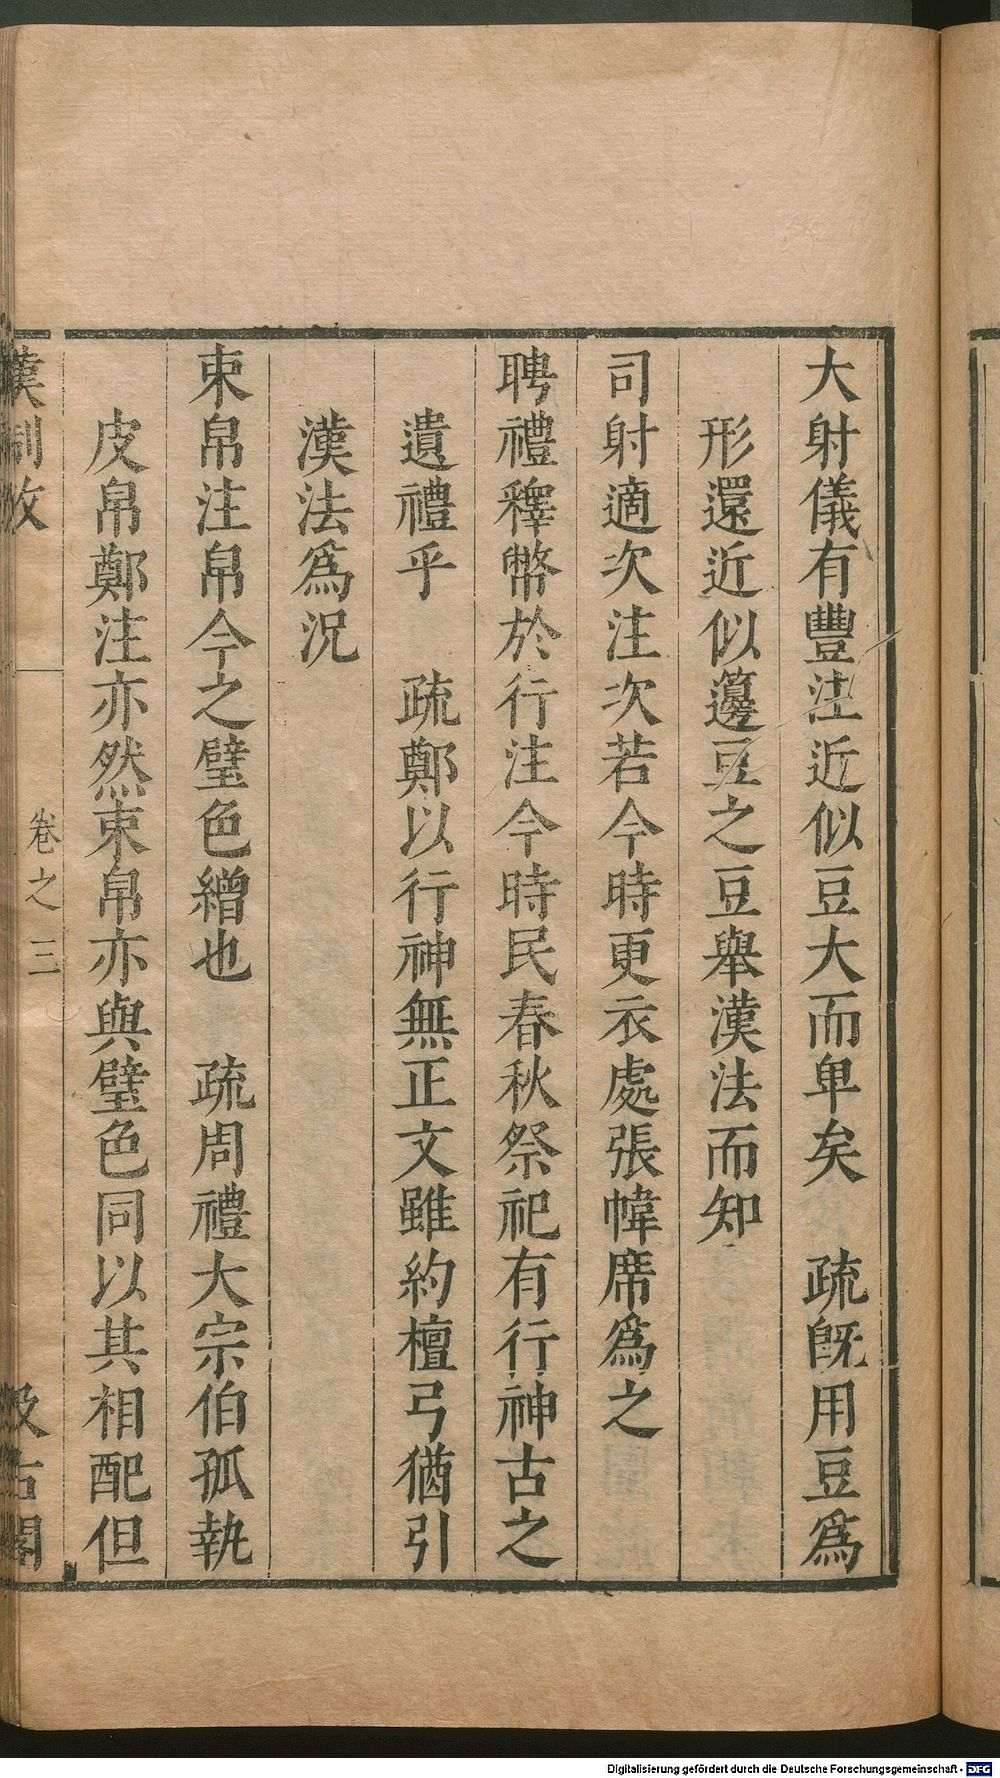 大射儀有豐注近似豆大而卑矣　疏旣用豆爲
形還近似籩豆之豆舉漢法而知
司射適次注次若今時更衣處張幃席爲之
聘禮釋幣於行注今時民春秋祭祀有行神古之
遺禮乎　疏鄭以行神無正文雖約檀弓猶引
漢法爲況
束帛注帛今之璧色繒也　疏周禮大宗伯孤執
皮帛鄭注亦然束帛亦與璧色同以其相配但
漢制攷　卷之三　汲古閣
Digitalisierung gefördert durch die Deutsche Forschungsgemeinschaft - DFG